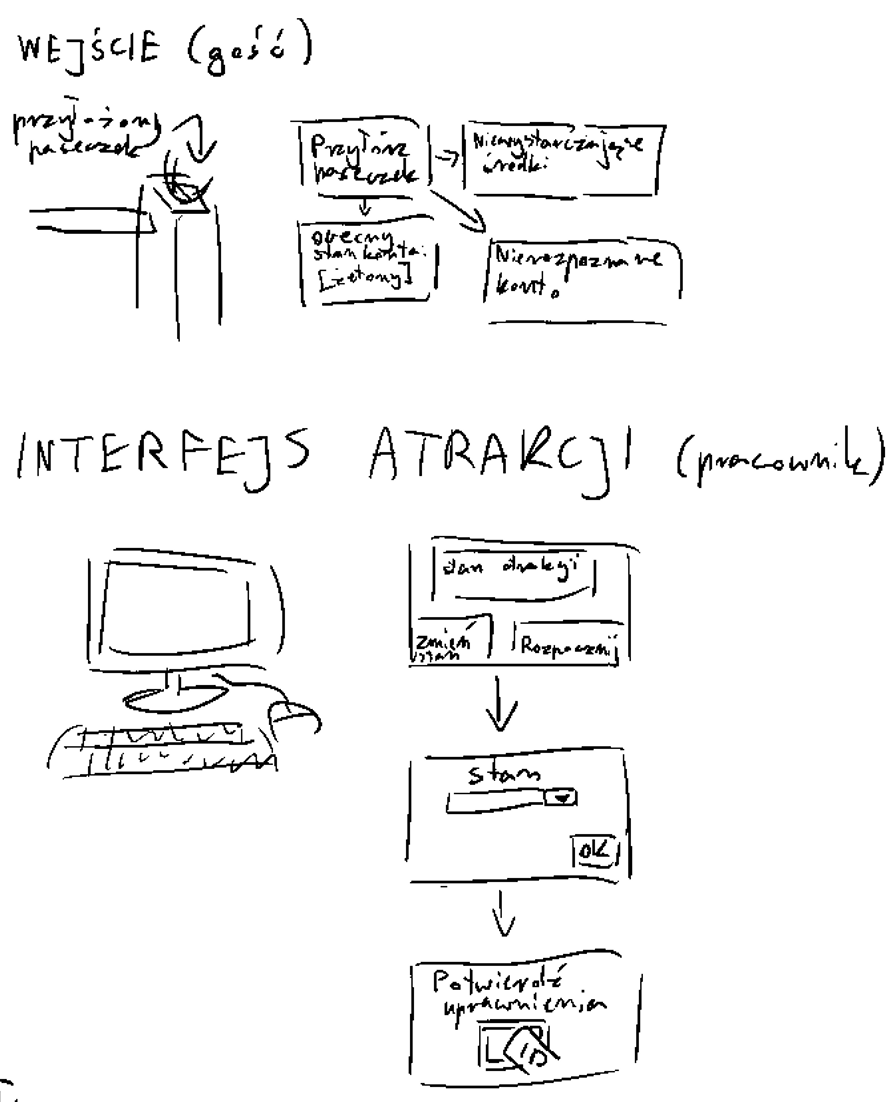 WEJŚCIE (gość)
przyłożony
paseczek
Przyłóż
paseczek
Niewystarczające
środki
obecny
stan konta:
[żetony]
Nierozpoznane
konto
INTERFEJS ATRAKCJI (pracownik)
stan atrakcji
Zmień
stan
Rozpocznij
stan
OK
Potwierdź
uprawnienia
ID